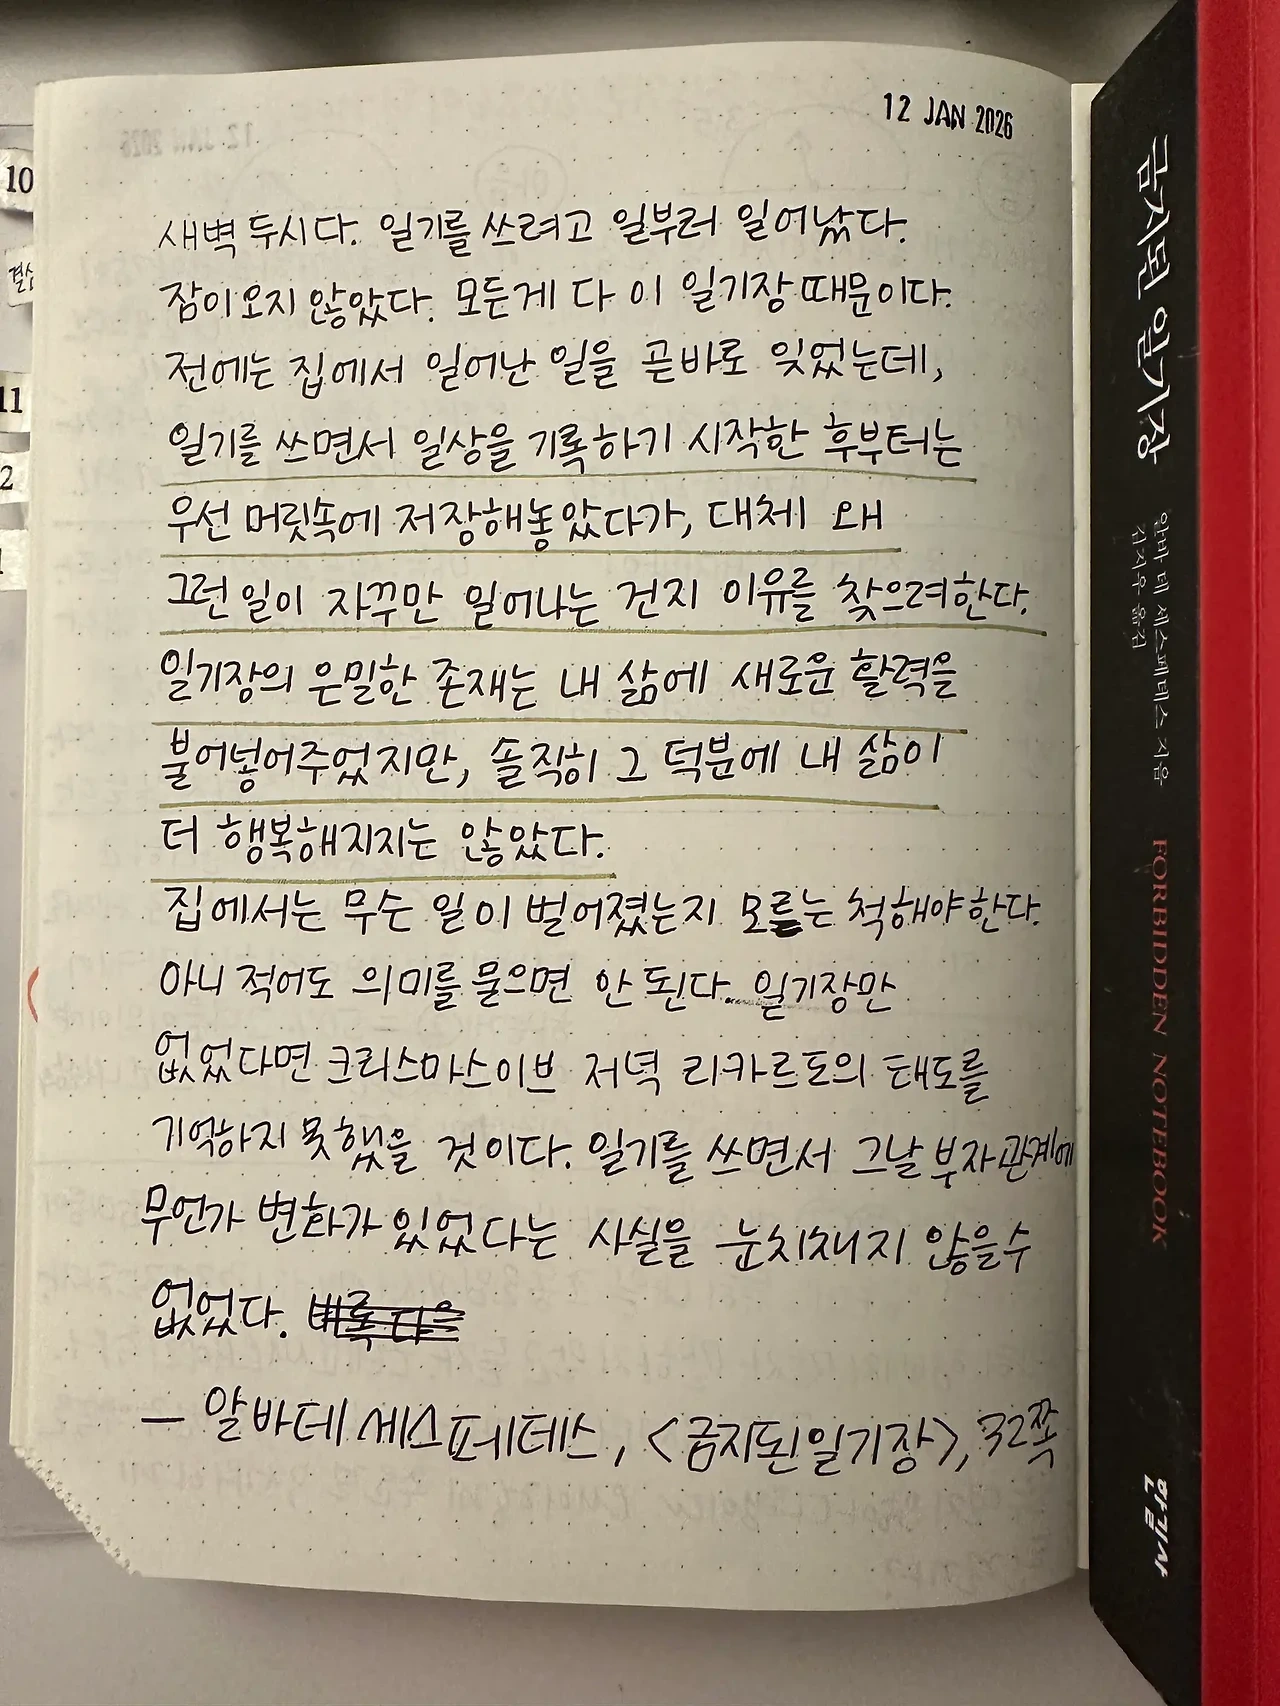 12 JAN 2026
새벽 두시다. 일기를 쓰려고 일부러 일어났다.
잠이 오지 않았다. 모든게 다 이 일기장 때문이다.
전에는 집에서 일어난 일을 곧바로 잊었는데,
일기를 쓰면서 일상을 기록하기 시작한 후부터는
우선 머릿속에 저장해놓았다가, 대체 왜
그런 일이 자꾸만 일어나는 건지 이유를 찾으려한다.
일기장의 은밀한 존재는 내 삶에 새로운 활력을
불어넣어주었지만, 솔직히 그 덕분에 내 삶이
더 행복해지지는 않았다.
집에서는 무슨 일이 벌어졌는지 모르는 척해야한다.
아니 적어도 의미를 물으면 안 된다. 일기장만
없었다면 크리스마스이브 저녁 리카르도의 태도를
기억하지 못했을 것이다. 일기를 쓰면서 그날 부자관계에
무언가 변화가 있었다는 사실을 눈치채지 않을수
없었다.
— 알바데 세스페데스, <금지된일기장>, 32쪽
10
결심
11
2
1
금지된 일기장
알바 데 세스페데스 지음
김지우 옮김
FORBIDDEN NOTEBOOK
한길사